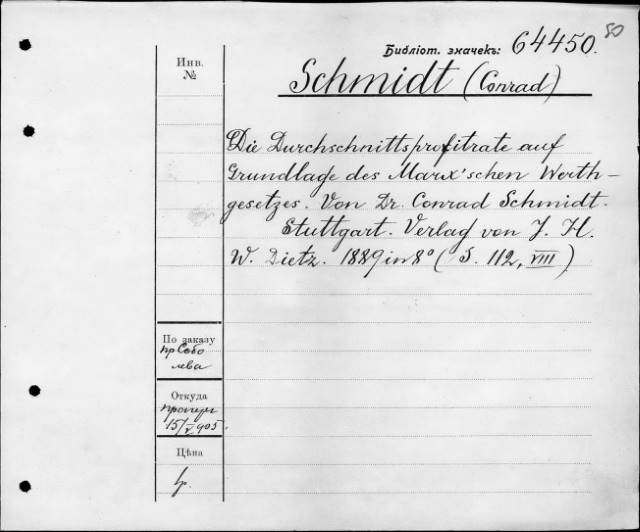 50
Библіот. значекъ: 64450.
Инв.
№
Schmidt (Conrad)
Die Durchschnittsprofitrate auf
Grundlage des Marx'schen Werth-
gesetzes. Von Dr. Conrad Schmidt.
Stuttgart. Verlag von J. H.
W. Dietz. 1889 in 8° (S. 112, VIII)
По заказу
пр Собо
лева
Откуда
15/V 905.
Цѣна